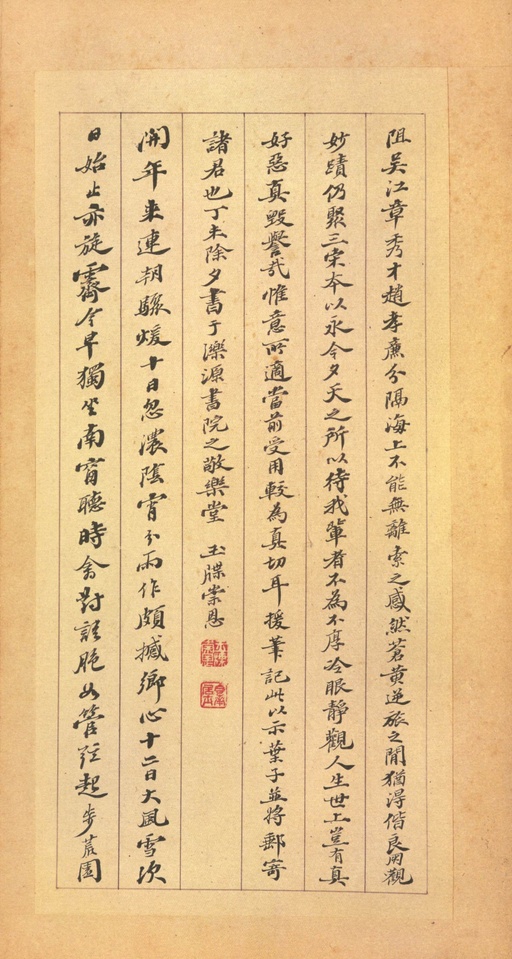 阻吳江章秀才趙孝廉分隔海上不能無離索之感然蒼黃逆旅之閒猶得偕良朋觀
妙蹟仍聚三宋本以永今夕天之所以待我輩者不為不厚冷眼靜觀人生世上豈有真
好惡真毀譽哉惟意所適當前受用較為真切耳援筆記此以示葉子並將郵寄
諸君也丁未除夕書于濼源書院之敬樂堂 玉牒崇恩
開年來連朝驟煖十日忽濃陰宵分雨作頗撼鄉心十二日大風雪次
日始止亦旋霽今早獨坐南窗聽時禽對語脆如管弦起步荒園